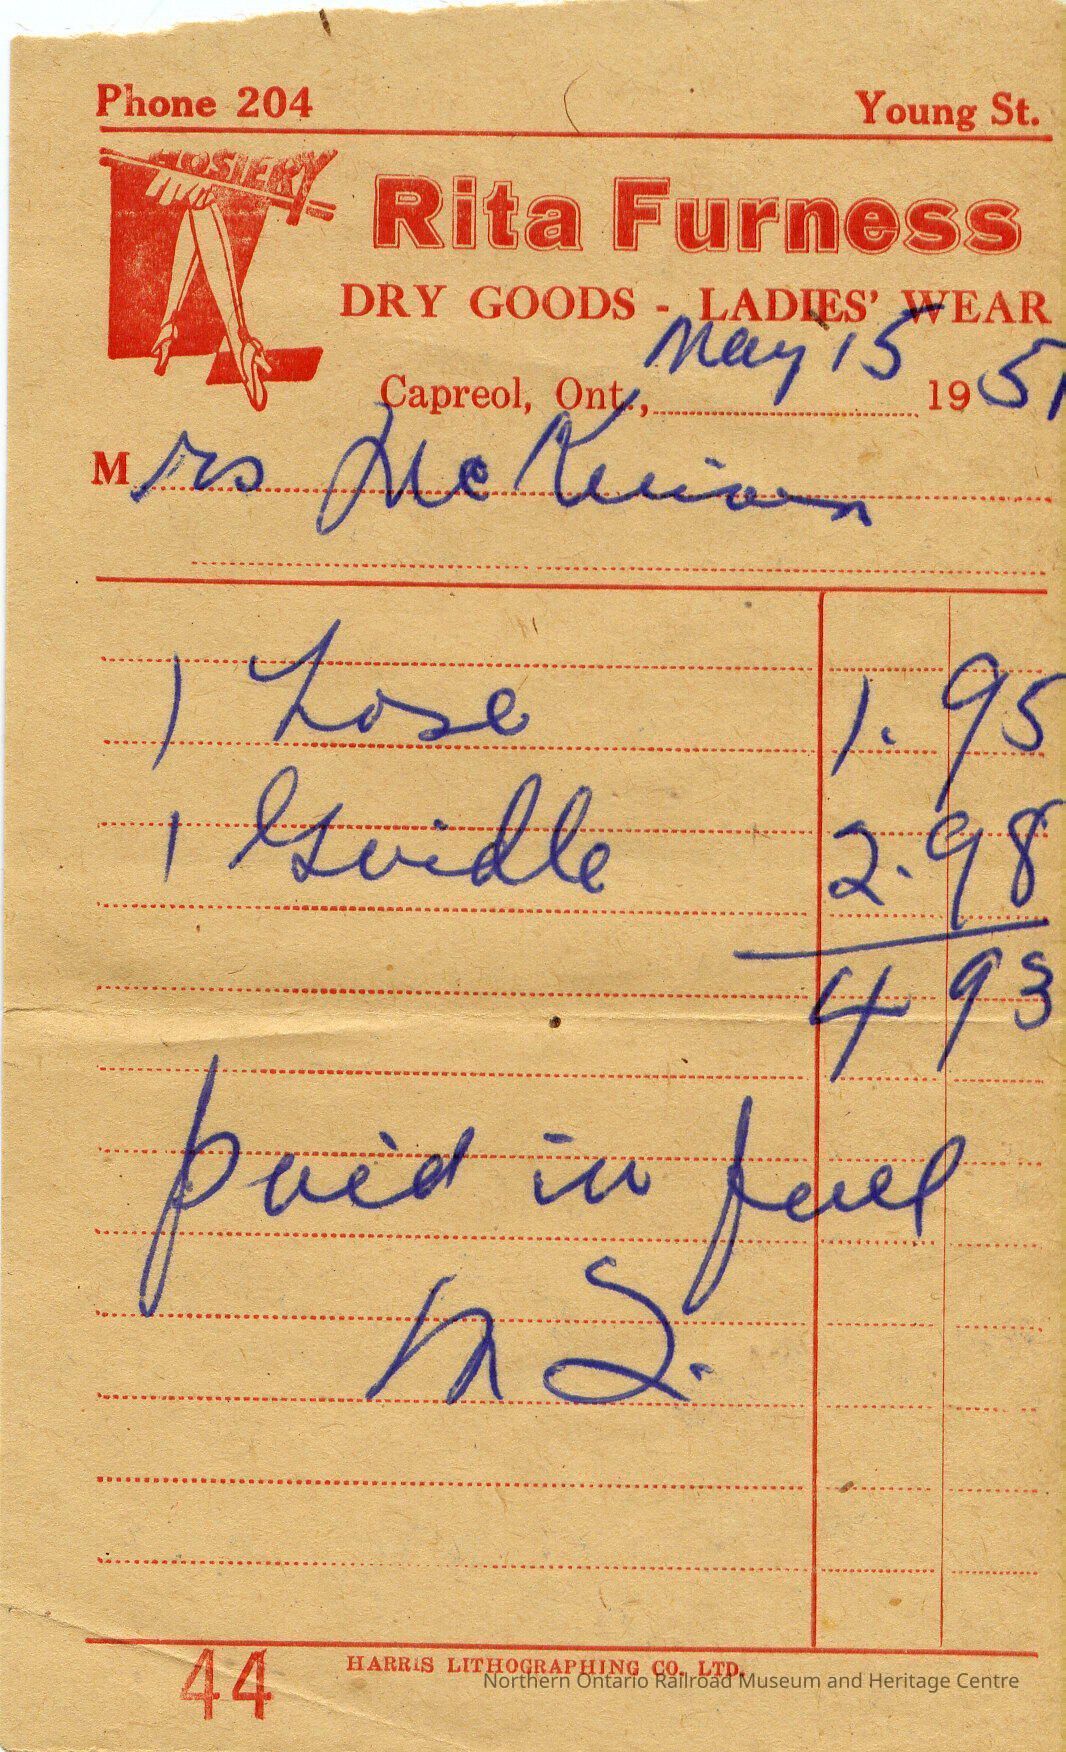 Phone 204 Young St.
HOSIERY
Rita Furness
DRY GOODS - LADIES' WEAR
Capreol, Ont., May 15 19 51
Mrs McKinnon
1 hose 1.95
1 Girdle 2.98
4 93
paid in full
44
HARRIS LITHOGRAPHING CO. LTD.
Northern Ontario Railroad Museum and Heritage Centre